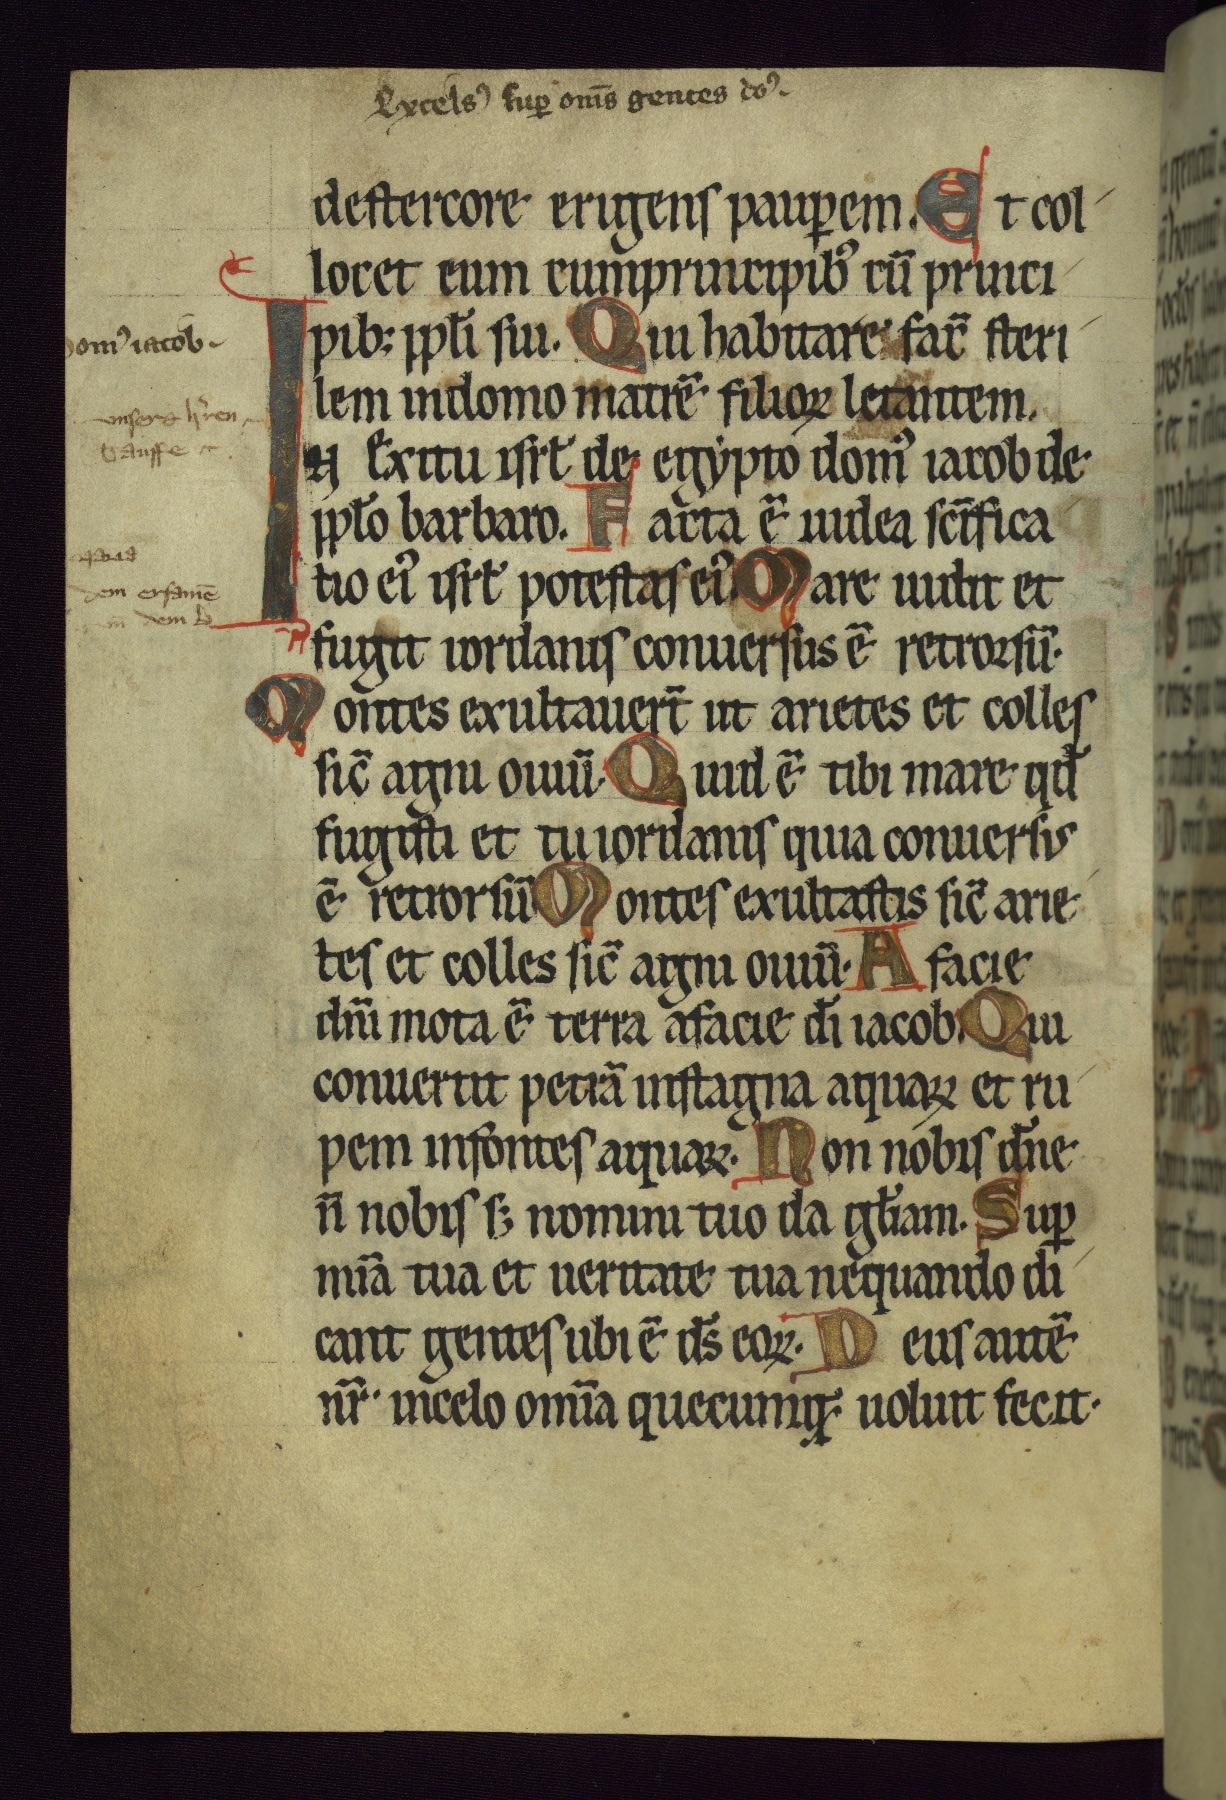 Excelsꝰ sup̱ om̄s gentes dn̄s.
destercore erigens paup̱em. Et col
locet eum cumprincipibꝰ cū princi
pib; ppl̄i sui. Qui habitare fac̄ steri
domꝰ iacob.
lem indomo matrē filioꝝ letantem.
In Exitu isrl̄ de egẏpto domꝰ iacob de
ppl̄o barbaro. Facta ē iudea sc̄ifica
tio eiꝰ isrl̄ potestas eiꝰ Mare uidit et
fugit iordanis conuersus ē retrorsū.
Montes exultauert̄ ut arietes et colles
sic̄ agni ouiū. Quid ē tibi mare qd̄
fugisti et tu iordanis quia conuersus
ē retrorsū Montes exultastis sic̄ arie
tes et colles sic̄ agni ouiū. A facie
dn̄i mota ē terra afacie di̅ iacob. Qui
conuertit petrā instagna aquaꝝ et ru
pem infontes aquaꝝ. Non nobis dn̄e
n̄ nobis s; nomini tuo da gl̄iam. Sup̱
mīa tua et ueritate tua nequando di
cant gentes ubi ē ds̄ eoꝝ. Deus autē
nr̄ incelo om̄ia quecumq; uoluit fecit.